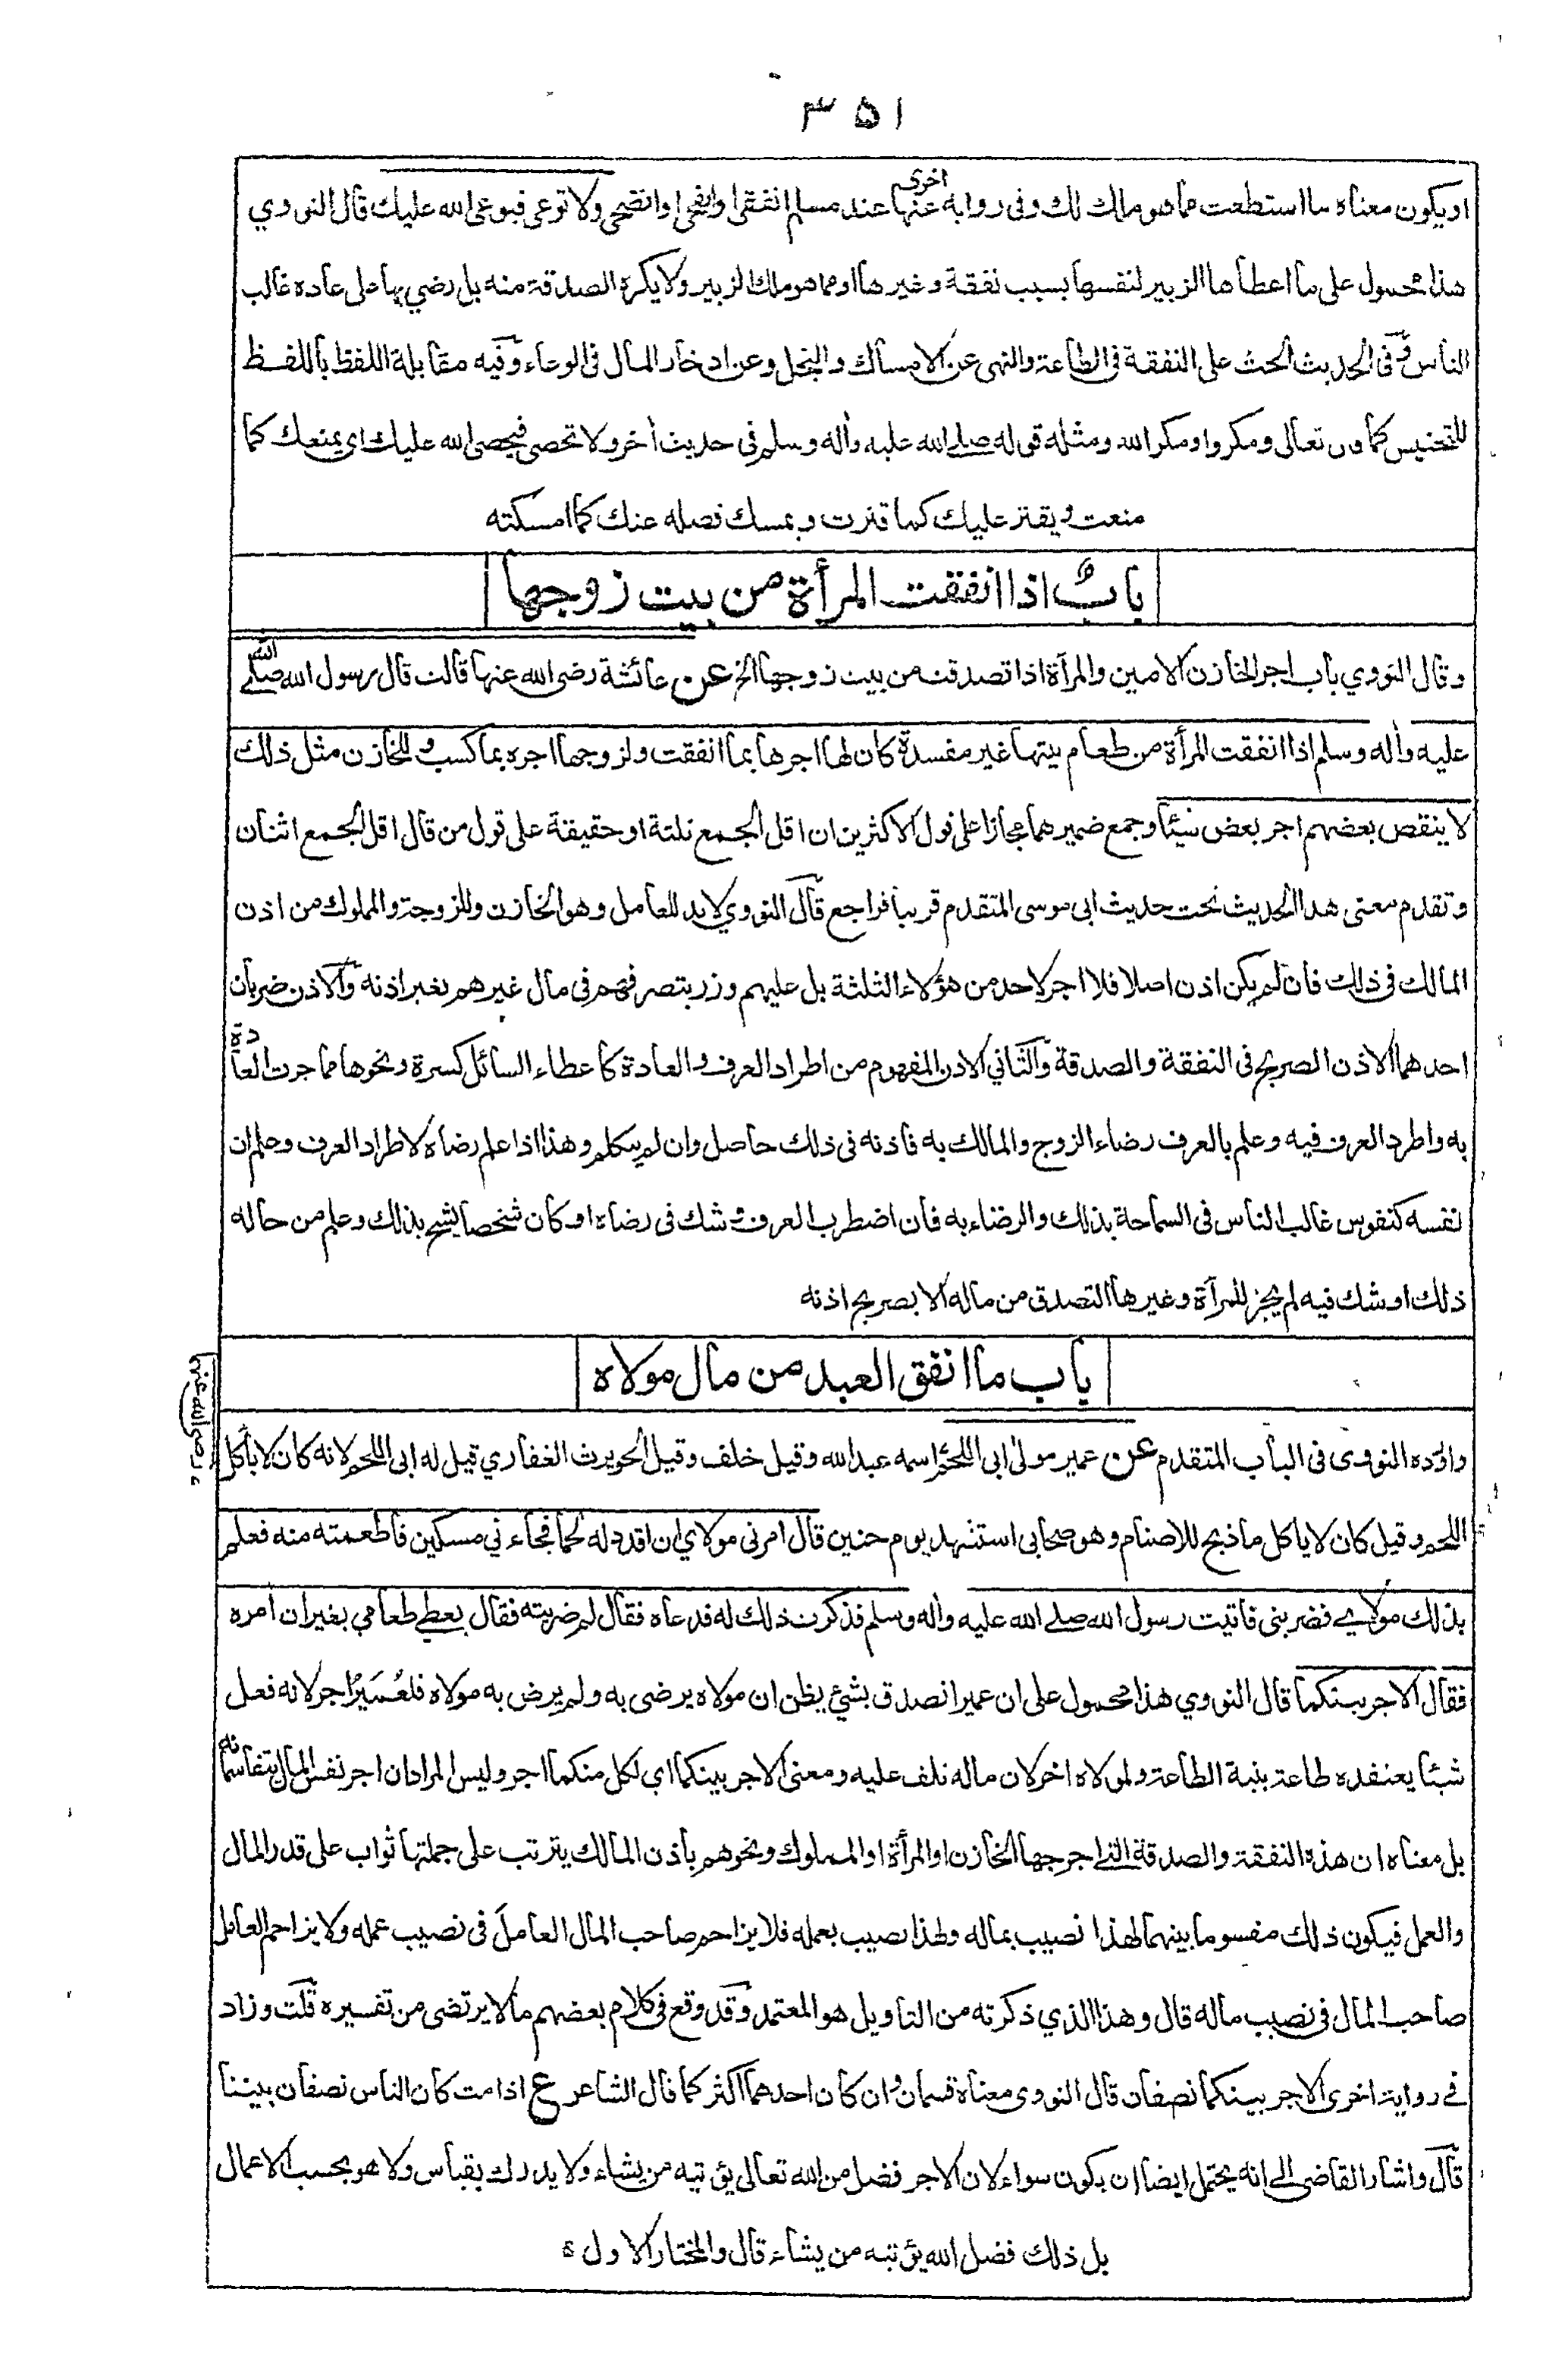 ۳۵۱
او يكون معناه ما استطعت مما هو ملك لك وفى رواية اخرى عنها عند مسلم انفقى او انفحى او انضحى ولا توعى فيوعى الله عليك قال النووي
هذا محمول على ما اعطاها الزبير لنفسها بسبب نفقة وغيرها او مما هو ملك الزبير ولا يكره الصدقة منه بل رضي بها على عادة غالب
الناس وفى الحديث الحث على النفقة فى الطاعة والنهى عن الامساك والبخل وعن ادخار المال فى الوعاء وفيه مقابلة اللفظ باللفظ
للتجنيس كما قال تعالى ومكروا ومكر الله ومثله قوله صلے الله عليه واله وسلم فى حديث اخر ولا تحصى فيحصى الله عليك اى يمنعك كما
منعت ويقتر عليك كما قترت ويمسك فضله عنك كما امسكته
بابٌ اذا انفقت المرأة من بيت زوجها
وقال النووي باب اجر الخازن الامين والمرأة اذا تصدقت من بيت زوجها الخ عن عائشة رضى الله عنها قالت قال رسول الله صلے الله
عليه واله وسلم اذا انفقت المرأة من طعام بيتها غير مفسدة كان لها اجرها بما انفقت ولزوجها اجره بما كسب وللخازن مثل ذلك
لا ينقص بعضهم اجر بعض شيئا وجمع ضميرهما مجازا على قول الاكثرين ان اقل الجمع ثلثة او حقيقة على قول من قال اقل الجمع اثنان
وتقدم معنى هذا الحديث تحت حديث ابى موسى المتقدم قريبا فراجع قال النووي لا بد للعامل وهو الخازن وللزوجة والمملوك من اذن
المالك فى ذلك فان لم يكن اذن اصلا فلا اجر لاحد من هؤلاء الثلثة بل عليهم وزر بتصرفهم فى مال غيرهم بغير اذنه والاذن ضربان
احدهما الاذن الصريح فى النفقة والصدقة والثاني الاذن المفهوم من اطراد العرف والعادة كاعطاء السائل كسرة ونحوها مما جرت العادة
به واطرد العرف فيه وعلم بالعرف رضاء الزوج والمالك به فاذنه فى ذلك حاصل وان لم يتكلم وهذا اذا علم رضاه لاطراد العرف وعلم ان
نفسه كنفوس غالب الناس فى السماحة بذلك والرضاء به فان اضطرب العرف وشك فى رضاه او كان شخصا يشح بذلك وعلم من حاله
ذلك او شك فيه لم يجز للمرأة وغيرها التصدق من ماله الا بصريح اذنه
باب ما انفق العبد من مال مولاه
واورده النووى فى الباب المتقدم عن عمير مولى ابى اللحم اسمه عبد الله وقيل خلف وقيل الحويرث الغفاري قيل له ابى اللحم لانه كان لا ياكل
اللحم وقيل كان لا ياكل ما ذبح للاصنام وهو صحابى استشهد يوم حنين قال امرنى مولاي ان اقدد له لحما فجاءني مسكين فاطعمته منه فعلم
بذلك مولاے فضربنى فاتيت رسول الله صلے الله عليه واله وسلم فذكرت ذلك له فدعاه فقال لم ضربته فقال يعطى طعامي بغير ان امره
فقال الاجر بينكما قال النووي هذا محمول على ان عميرا تصدق بشئ يظن ان مولاه يرضى به ولم يرض به مولاه فلعُمَيرٌ اجر لانه فعل
شيئا يعتقده طاعة بنية الطاعة ولمولاه اخر لان ماله تلف عليه ومعنى الاجر بينكما اى لكل منكما اجر وليس المراد ان اجر نفس المال يتقاسمانه
بل معناه ان هذه النفقة والصدقة التے اخرجها الخازن او المرأة او المملوك ونحوهم باذن المالك يترتب على جملتها ثواب على قدر المال
والعمل فيكون ذلك مقسوما بينهما لهذا نصيب بماله ولهذا نصيب بعمله فلا يزاحم صاحب المال العامل فى نصيب عمله ولا يزاحم العامل
صاحب المال فى نصيب ماله قال وهذا الذي ذكرته من التاويل هو المعتمد وقد وقع فى كلام بعضهم ما لا يرتضى من تفسيره قلت وزاد
فے رواية اخرى الاجر بينكما نصفان قال النووى معناه قسمان وان كان احدهما اكثر كما قال الشاعر ع اذا مت كان الناس نصفان بيننا
قال واشار القاضى الى انه يحتمل ايضا ان يكون سواء لان الاجر فضل من الله تعالى يؤتيه من يشاء ولا يدرك بقياس ولا هو بحسب الاعمال
بل ذلك فضل الله يؤتيه من يشاء قال والمختار الاول